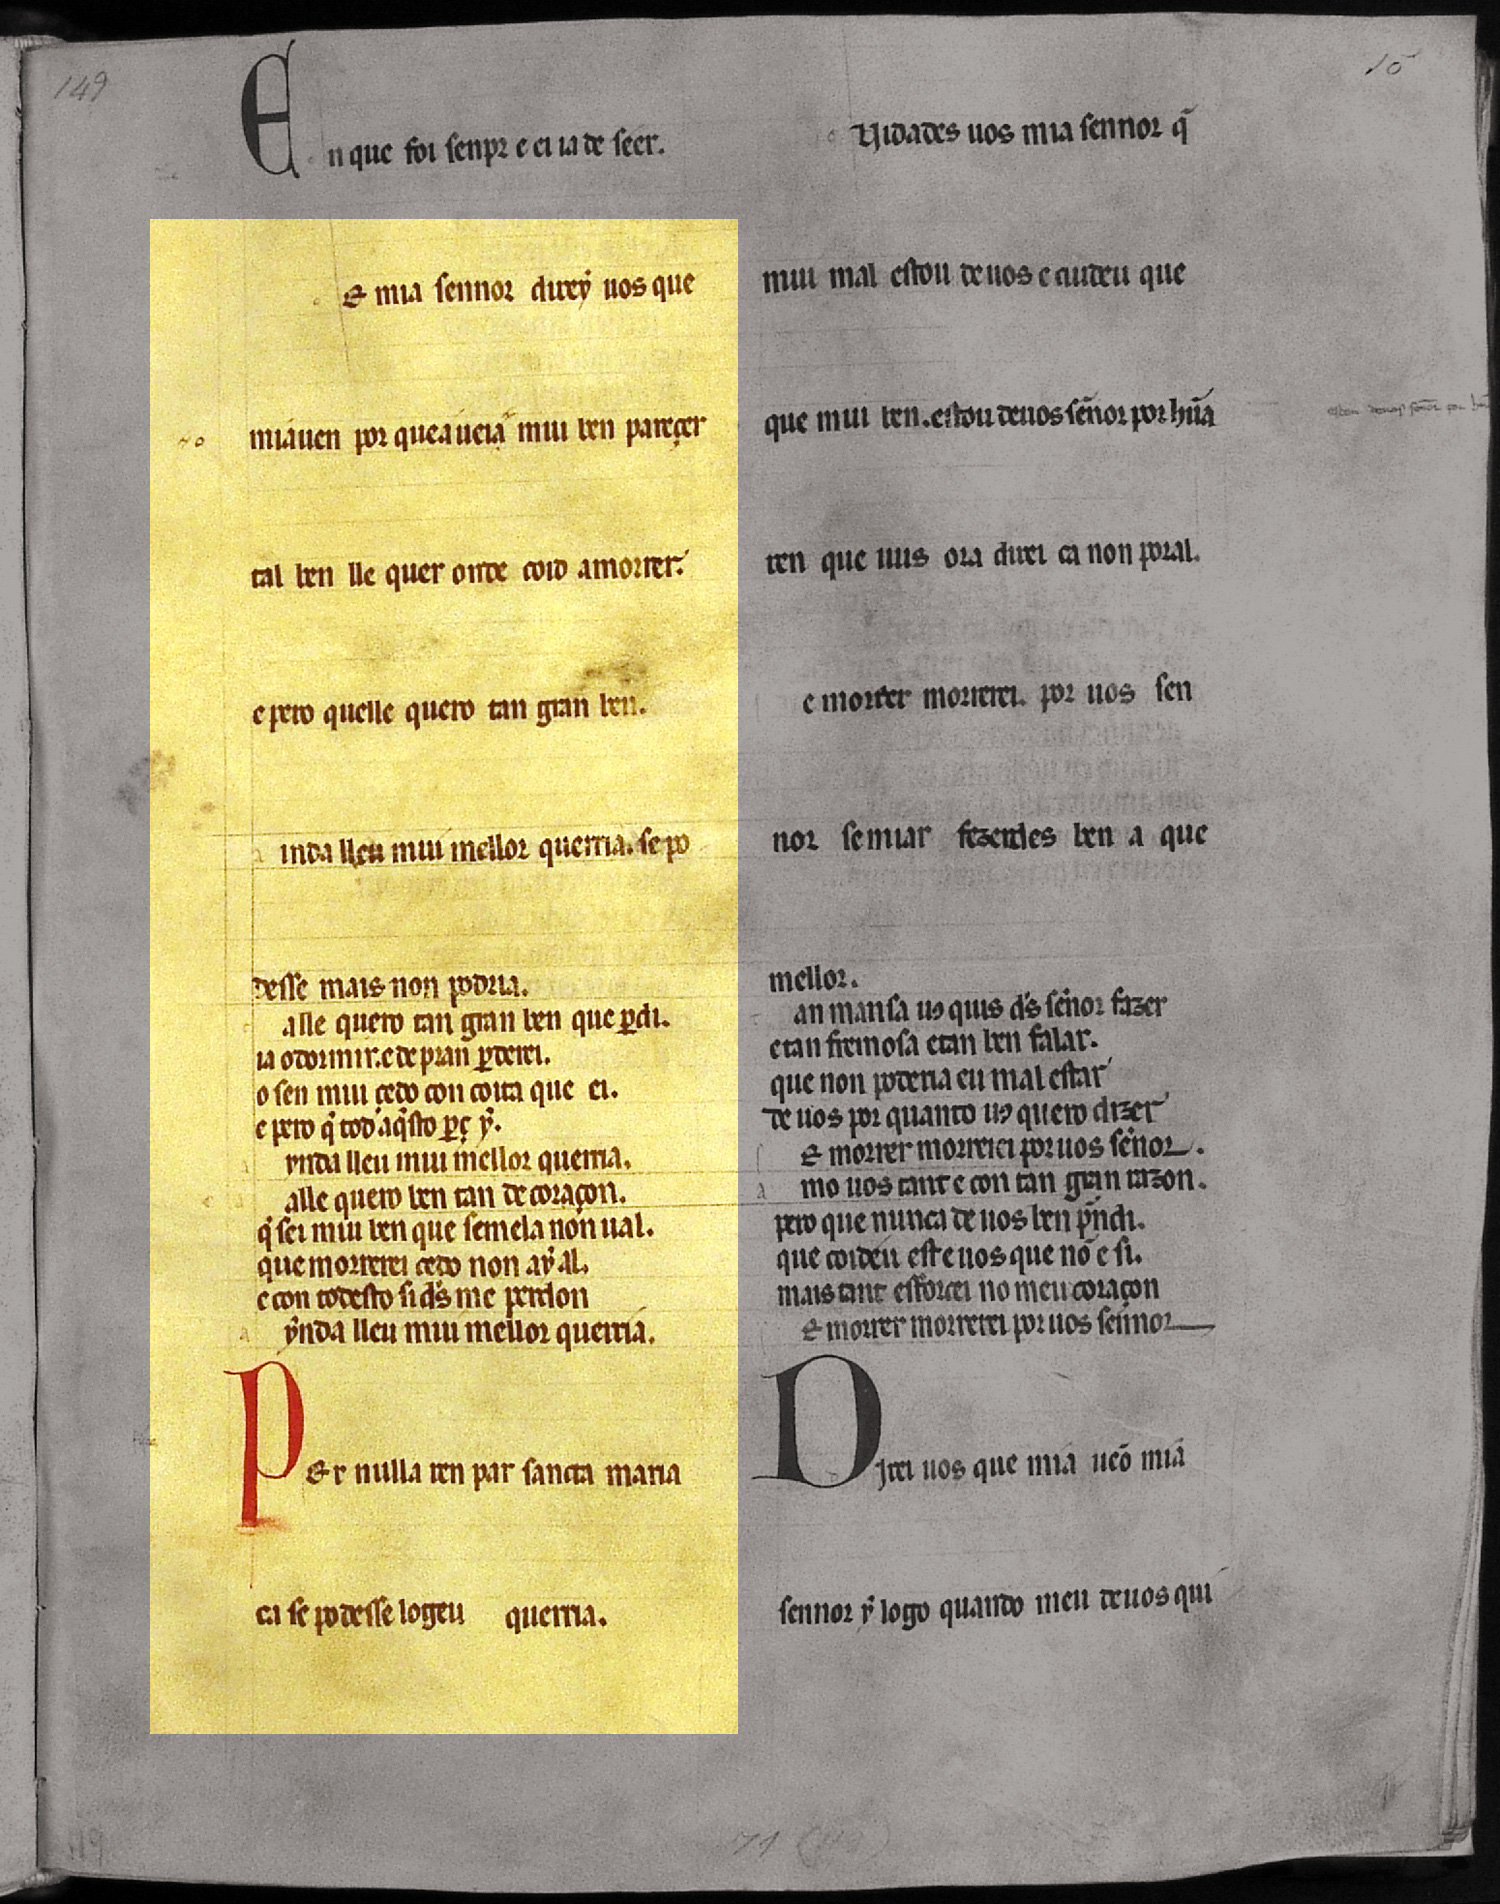 149
15
En que foi senpr e ei ia de seer.
E mia sennor direẏ uos que
miauen por que a ueia mui ben pareçer
tal ben lle quer onde coid a morrer.
e pero quelle quero tan gran ben.
inda lleu mui mellor querria. se po
desse mais non podria.
alle quero tan gran ben que ꝑdi.
ia o dormir. e de pran ꝑderei.
o sen mui çedo con coita que ei.
e pero q̇ tod aq̇sto ꝑç ẏ.
ynda lleu mui mellor querria.
alle quero ben tan de coraçon.
q̇ sei mui ben que semela non ual.
que morrerei cedo non aẏ al.
e con todesto si d̄s me perdon
ẏnda lleu mui mellor querria.
PEr nulla ren par sancta maria
ca se podesse logeu querria.
Uidades uos mia sennor q̄
mui mal estou de uos e cuideu que
que mui ben. estou de uos sen̄or por hũa
ren que uus ora direi ca non por al.
e morrer morrerei. por uos sen
nor se miar fezerdes ben a que
mellor.
an mansa uꝯ quis d̄s sen̄or fazer
e tan fremosa e tan ben falar.
que non poderia eu mal estar
de uos por quanto uꝯ quero dizer
E morrer morrerei por uos sen̄or.
mo uos tant e con tan gran razon.
pero que nunca de uos ben p̃ndi.
que coideu est e uos que nō e si.
mais tant esforcei no meu coraçon
E morrer morrerei por uos sennor
DIrei uos que mia ueō mia
sennor ẏ logo quando meu de uos qui